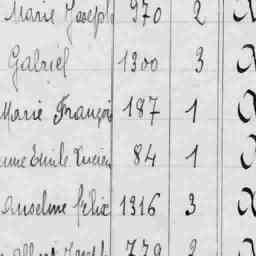 Marie Joseph 970 2
Gabriel 1300 3
Marie François 187 1
Emile Lucien 84 1
Anselme Félix 1316 3
Albert Joseph 779 2